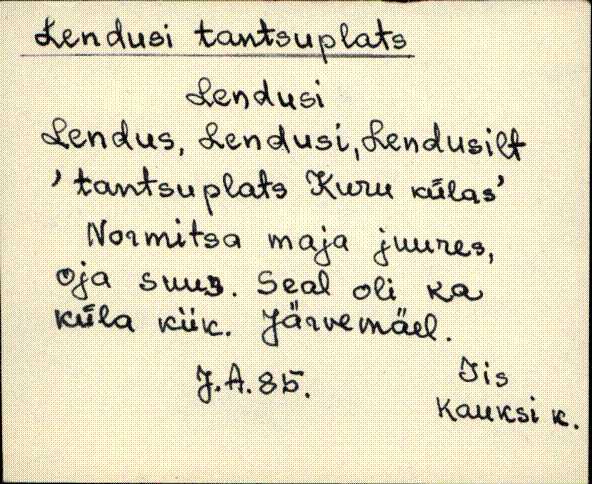 Lendusi tantsuplats
Lendusi
Lendus, Lendusi, Lendusilt
'tantsuplats Kuru külas'
Normitsa maja juures,
oja suus. Seal oli ka
küla kiik. Järvemäel.
J.A.85. Iis
Kauksi k.